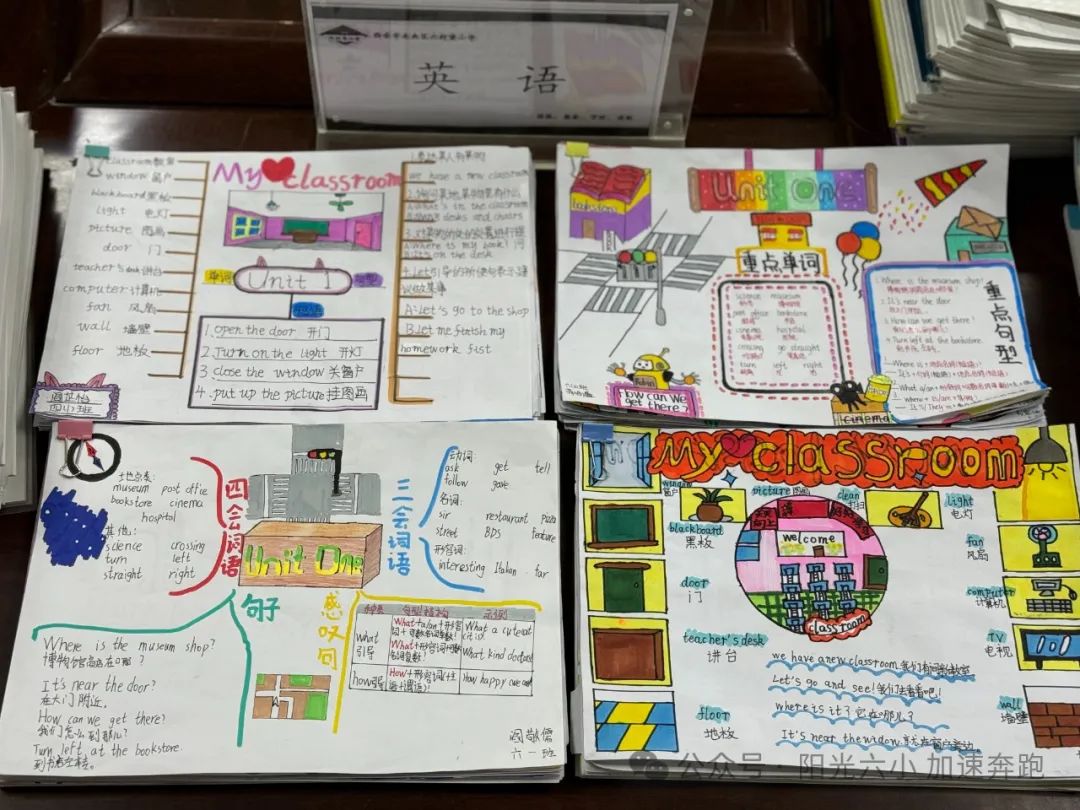 英 语
My classroom
classroom教室
window 窗户
blackboard黑板
light 电灯
picture 图画
door 门
teacher's desk讲台
computer计算机
fan 风扇
wall 墙壁
floor 地板
四(1)班
单词
Unit 1
1. open the door 开门
2. Turn on the light 开灯
3 close the window 关窗户
4. put up the picture挂图画
we have a new classroom
What's in the classroom
desks and chairs
Where is my book?
It's on the desk
A: Let's go to the shop
B: Let me fintsh my
homework fist
Unit One
bookstore
重点单词
science museum
post office bookstore
cinema hospital
crossing go straight
turn left right
Robin
How can We
get there?
cinema
重点句型
1. Where is the museum shop?
2. It's near the door
3. How can we get there?
4. Turn left at the bookstore.
四会词语
地点类:
museum post office
bookstore cinema
hospital
其他:
science crossing
turn left
straight right
Unit One
三会词语
动词:
ask get tell
follow gave
名词:
sir restaurant pizza
street BDS feature
形容词:
interesting Italian far
句子
Where is the museum shop?
博物馆商店在哪?
It's near the door?
在大门附近。
How can we get there?
我们怎么到那儿?
Turn left at the bookstore.
到书店左转。
感叹句
种类 句型结构 示例
What
引导
how引导
六一班
My classroom
window
窗户
picture 图画
clean
light
电灯
blackboard
黑板
fan
风扇
door
门
computer
计算机
welcome
classroom
teacher's desk
讲台
TV
电视
floor
地板
wall
墙壁
we have a new classroom 我们有间新教室
Let's go and see! 我们去看看吧!
where is it? 它在哪儿?
It's near the widow.
公众号 · 阳光六小 加速奔跑